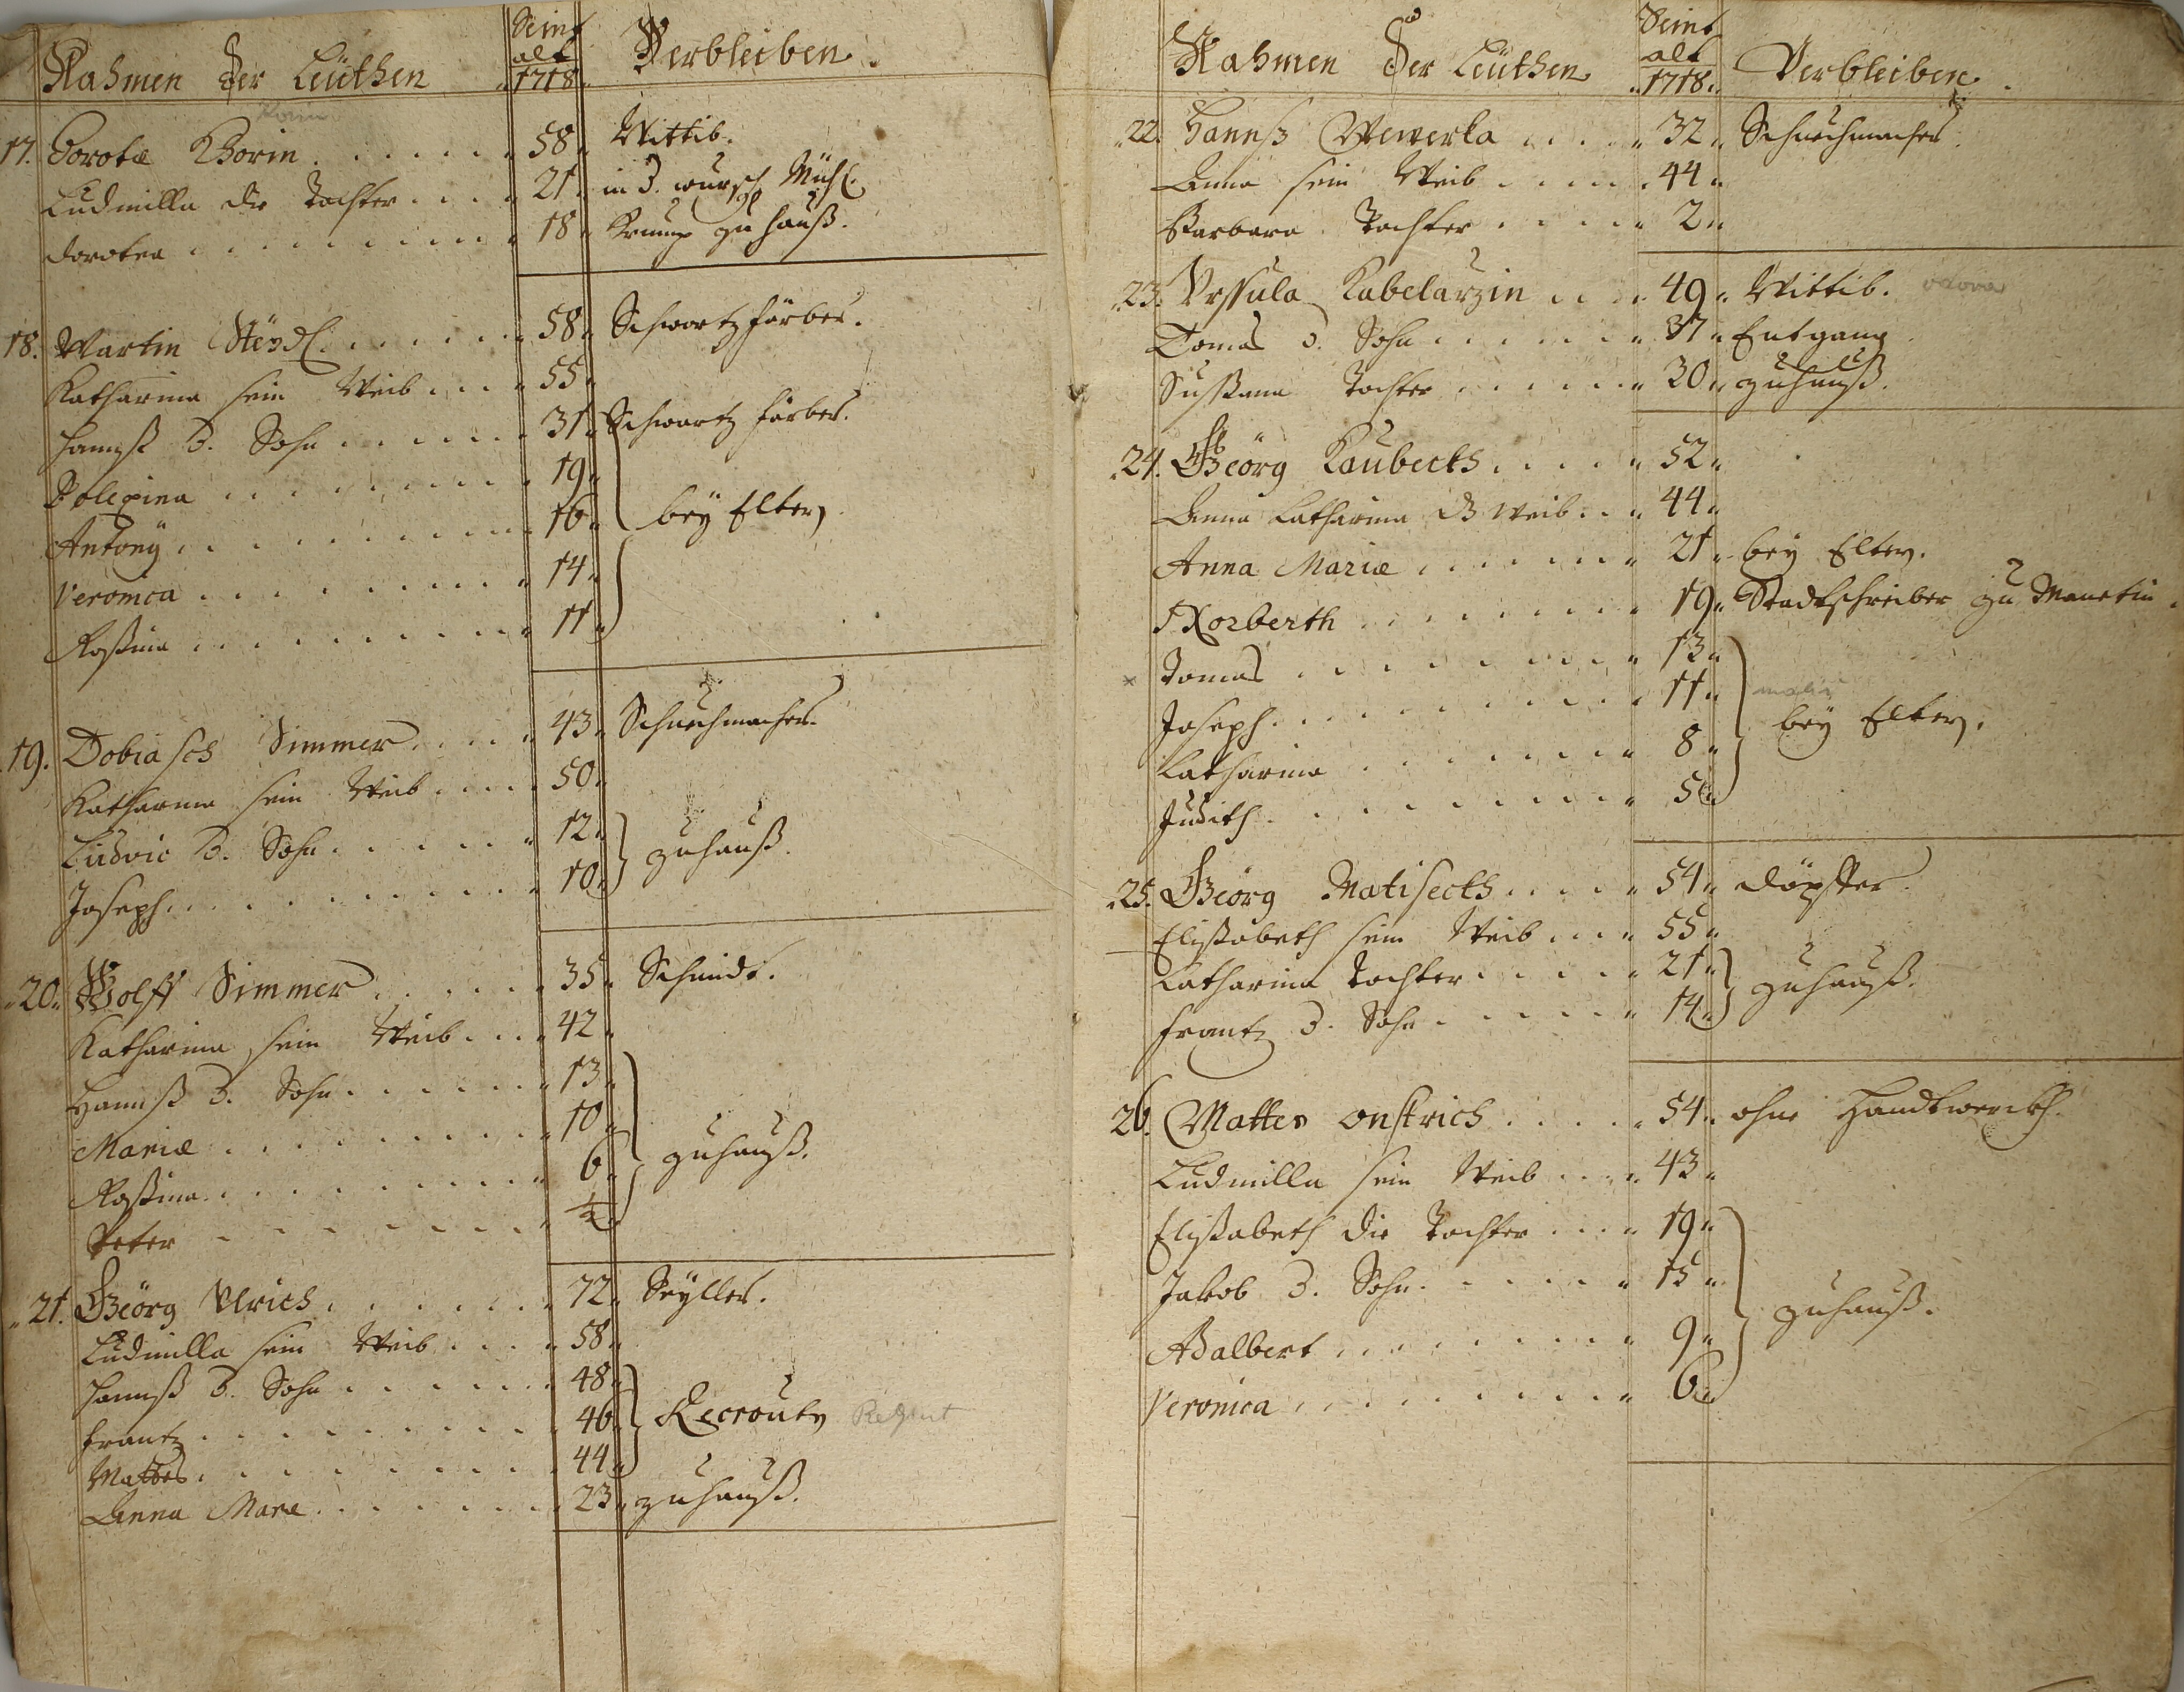 Nahmen der Leüthen Seint alt 1718 Verbleiben.
17. Dorotæ Borin 58 Wittib.
Ludmilla die Tochter 21 in d. Mühl
Dorotea 18 Krump zu hauß.
18. Martin 58 Schwartzfärber.
Katharina sein Weib 55
Hannß d. Sohn 31 Schwartz färber.
Polexina 19
Antony 16 bey Eltern
Veronica 14
Rosina 11
19. Dobiasch Simmer 43 Schuchmacher.
Katharina sein Weib 50
Ludvic d. Sohn 12
Joseph 10 zu hauß.
20. Wolff Simmer 35 Schmidt.
Katharina sein Weib 42
Hannß d. Sohn 13
Mariæ 10
Rosina 6 zuhauß.
Peter 1/2
21. Geörg Ulrich 72 Seyller.
Ludmilla sein Weib 58
Hannß d. Sohn 48
Frantz 46 Recrouten
Mattes 44
Anna Mare 23 zuhauß.
Nahmen der Leüthen Seint alt 1718 Verbleiben.
22. Hannß Wewerka 32 Schuchmacher.
Anna sein Weib 44
Barbara Tochter 2
23. Ursula Kabelarzin 49 Wittib. vdova
Tomas d. Sohn 37 Entgang
Susanna Tochter 30 zuhauß.
24. Geörg Kaubeckh 52
Anna Catharina d Weib 44
Anna Mariæ 21 bey Eltern.
Norberth 19 Stadtschreiber zu Manetin.
Tomas 13
Joseph 11
Catharina 8 bey Eltern.
Judith 5
25. Geörg Matiseckh 54 Döpffer.
Elisabeth sein Weib 55
Catharina Tochter 21
Frantz d. Sohn 14 zuhauß.
26. Mattes Onstrich 54 ohne Handtwerckh.
Ludmilla sein Weib 43
Elisabeth die Tochter 19
Jakob d. Sohn 15
Adalbert 9 zuhauß.
Veronica 6